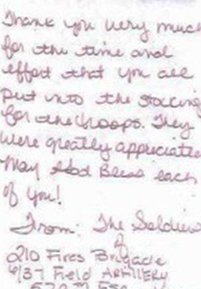 Thank you very much
for the time and
effort that you all
put into the stocking
for the troops. They
were greatly appreciated
May God Bless each
of you!
From: The Soldiers
of
210 Fires Brigade
6/37 Field Artillery